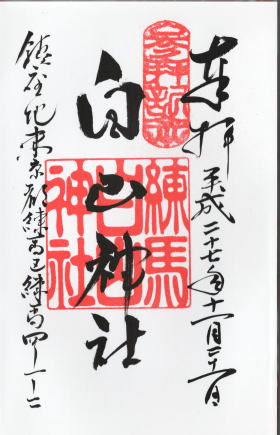 奉拝
平成二十七年十一月二十一日
参拝記念
白山神社
練馬白山神社
鎮座地東京都練馬区練馬四ー一ー二